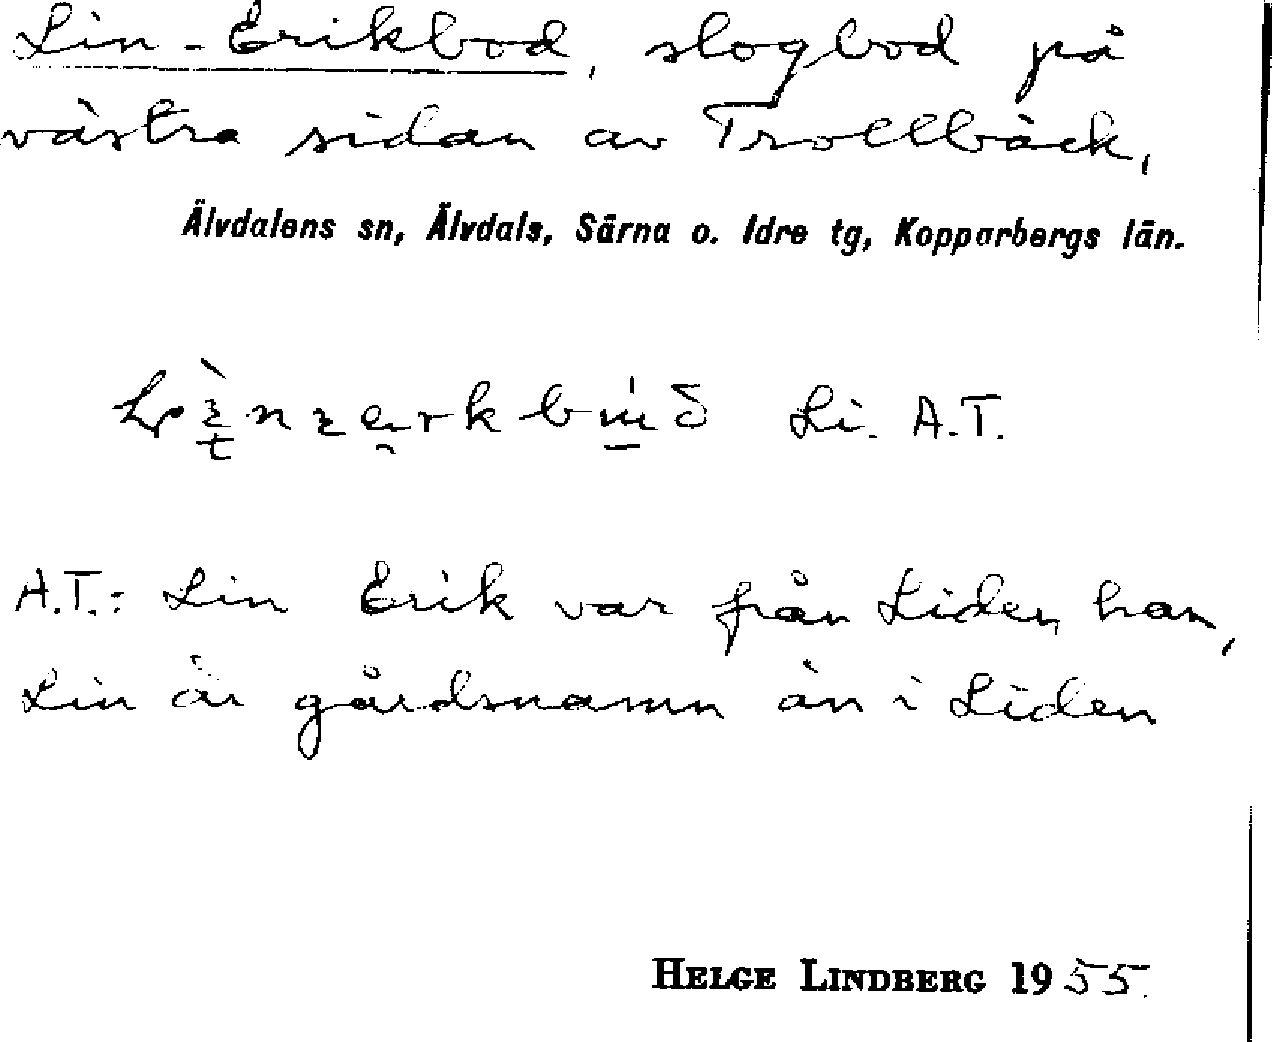 Lin-Erikbod, slogbod på
västra sidan av Trollbäck,
Älvdalens sn, Älvdals, Särna o. Idre tg, Kopparbergs län.
Li. A.T.
A.T.: Lin Erik var från Liden han,
Lin är gårdsnamn än i Liden
HELGE LINDBERG 1955.